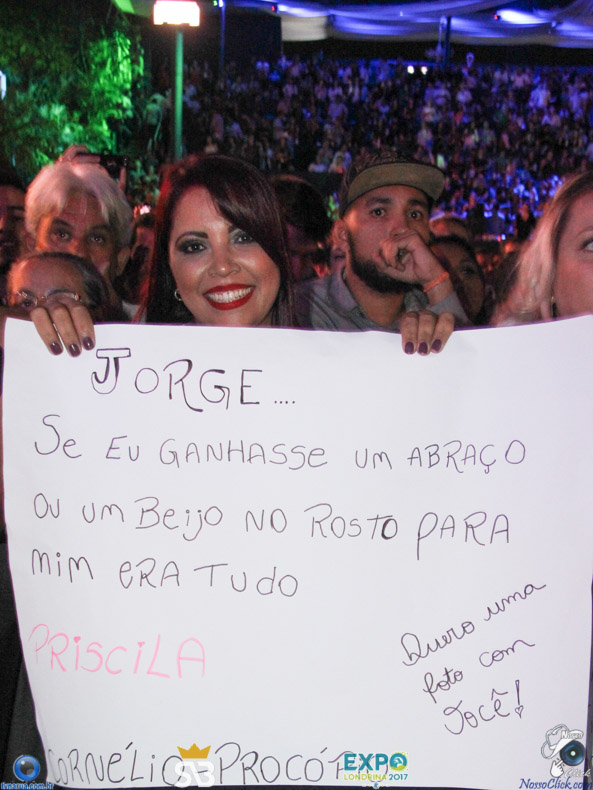 JORGE....
SE EU GANHASSE UM ABRAÇO
OU UM BEIJO NO ROSTO PARA
MIM ERA TUDO
PRISCILA
Quero uma
foto com
você!
CORNÉLIO PROCÓPIO
SB
EXPO
LONDRINA 2017
NossoClick.com